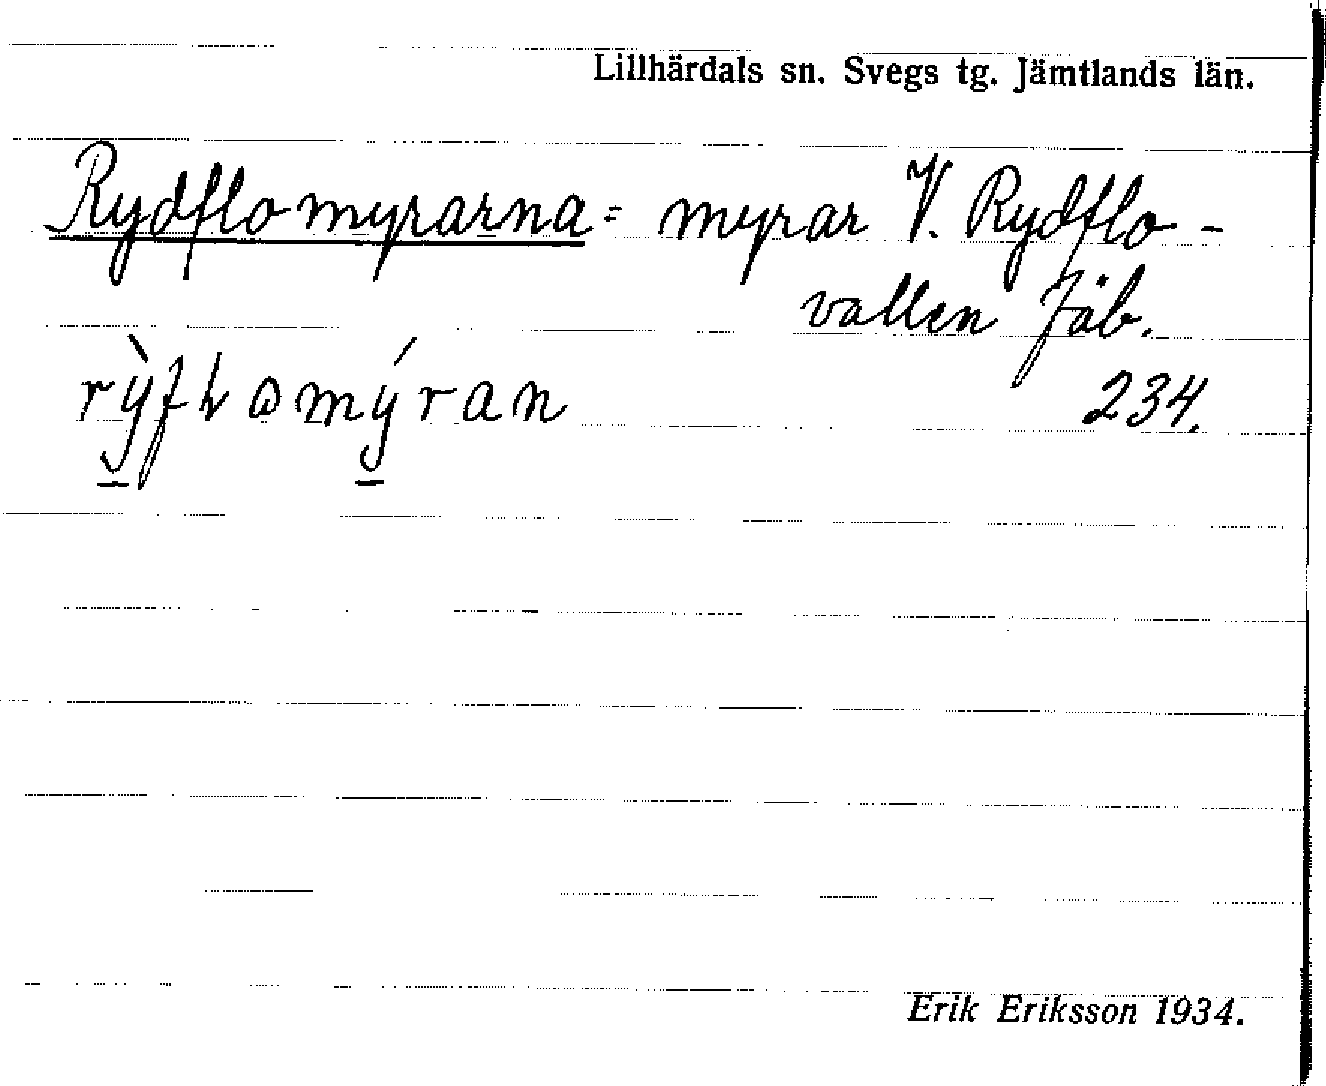 Lillhärdals sn. Svegs tg. Jämtlands län.
Rydflomyrarna = myrar V. Rydflo-
vallen fäb.
234.
Erik Eriksson 1934.